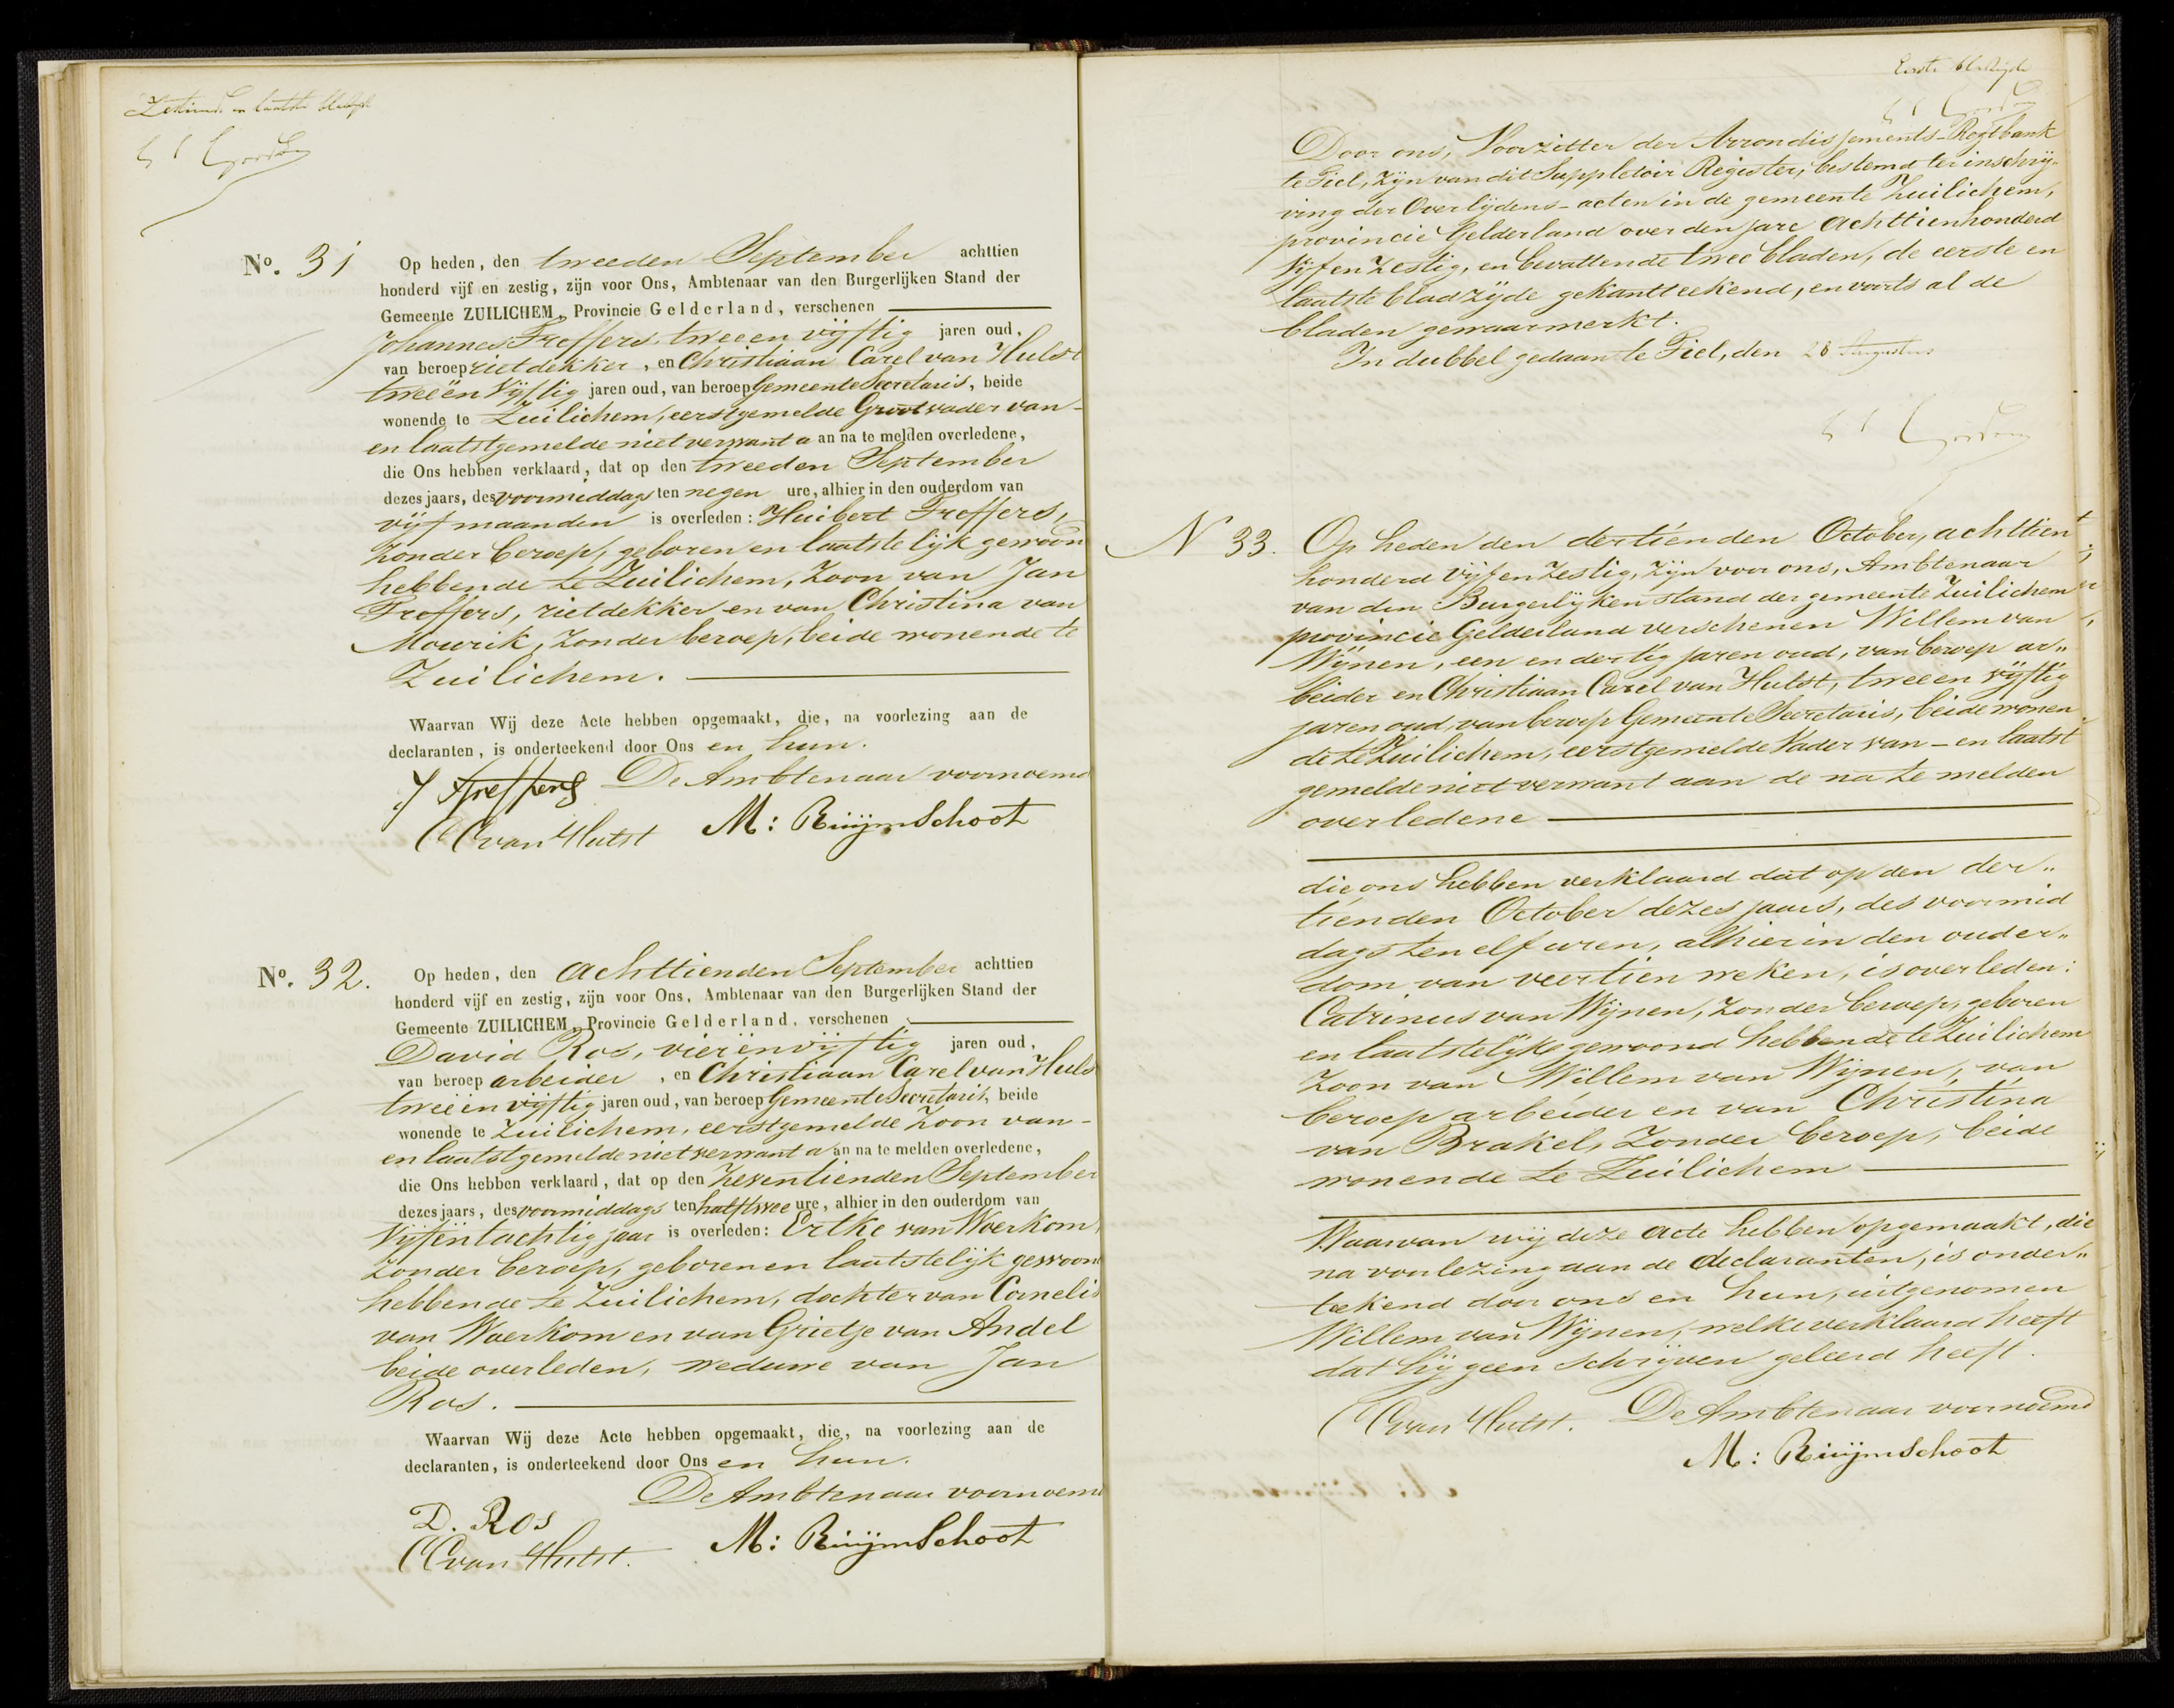 Zestiende en laatste bladzijde
No. 31 Op heden, den tweeden September achttien
honderd vijf en zestig, zijn voor Ons, Ambtenaar van den Burgerlijken Stand der
Gemeente ZUILICHEM, Provincie Gelderland, verschenen
Johannes Treffers, tweeen vijftig jaren oud,
van beroep rietdekker, en Christiaan Carel van Hulst
tweeën vijftig jaren oud, van beroep Gemeente Secretaris, beide
wonende te Zuilichem, eerstgemelde Grootvader van-
en laatstgemelde niet verwant a an na te melden overledene,
die Ons hebben verklaard, dat op den tweeden September
dezes jaars, des voormiddags ten negen ure, alhier in den ouderdom van
vijf maanden is overleden: Huibert Treffers,
zonder beroep, geboren en laatstelijk gewoon
hebbende te Zuilichem, Zoon van Jan
Treffers, rietdekker en van Christina van
Mourik, zonder beroep, beide wonende te
Zuilichem.
Waarvan Wij deze Acte hebben opgemaakt, die, na voorlezing aan de
declaranten, is onderteekend door Ons en hun.
J Treffers De Ambtenaar voornoemd
CC van Hulst M: Ruijmschoot
No. 32. Op heden, den achttienden September achttien
honderd vijf en zestig, zijn voor Ons, Ambtenaar van den Burgerlijken Stand der
Gemeente ZUILICHEM, Provincie Gelderland, verschenen
David Ros, vierenvijftig jaren oud,
van beroep arbeider, en Christiaan Carel van Huls
tweeën vijftig jaren oud, van beroep Gemeente Secretaris, beide
wonende te Zuilichem, eerstgemelde Zoon van-
en laatstgemelde niet verwant a an na te melden overledene,
die Ons hebben verklaard, dat op den zeventienden September
dezes jaars, des voormiddags ten half twee ure, alhier in den ouderdom van
Vijfentachtig jaar is overleden: Eelke van Woerkom,
zonder beroep, geboren en laatstelijk gewoon
hebbende te Zuilichem, dochter van Cornelis
van Woerkom en van Grietje van Andel
beide overleden, weduwe van Jan
Ros.
Waarvan Wij deze Acte hebben opgemaakt, die, na voorlezing aan de
declaranten, is onderteekend door Ons en hun.
De Ambtenaar voornoem
D. Ros
CC van Hulst. M: Ruijmschoot
Eerste bladzijde
Door ons, Voorzitter der Arrondissements-Regtbank
te Tiel, zijn van dit Suppletoir Register, bestemd ter inschrij-
ving der Overlijdens-acten in de gemeente Zuilichem,
provincie Gelderland over den jare Achttienhonderd
Vijf en Zestig, en bevattende twee bladen, de eerste en
laatste bladzijde gekantteekend, en voorts al de
bladen gewaarmerkt.
In dubbel gedaan te Tiel, den 28 Augustus
N 33. Op heden den dertienden October, achttien
honderd vijf en Zestig, zijn voor ons, Ambtenaar
van den Burgerlijken stand der gemeente Zuilichem
provincie Gelderland verschenen Willem van
Wijnen, een en dertig jaren oud, van beroep ar„
beider en Christiaan Carel van Hulst, tweeen vijftig
jaren oud, van beroep Gemeente Secretaris, beide wonen
de te Zuilichem, eerstgemelde Vader van - en laatst
gemelde niet verwant aan de na te melden
overledene
die ons hebben verklaard dat op den der„
tienden October dezes jaars, des voormid
dags ten elf uren, alhier in den ouder„
dom van veertien weken, is overleden:
Catrinus van Wijnen, zonder beroep, geboren
en laatstelijk gewoond hebbende te Zuilichem
Zoon van Willem van Wijnen, van
beroep arbeider en van Christina
van Brakel, zonder beroep, beide
wonende te Zuilichem
Waarvan wij deze acte hebben opgemaakt, die
na voorlezing aan de declaranten, is onder„
teekend door ons en hun, uitgenomen
Willem van Wijnen, welke verklaard heeft
dat hij geen schrijven geleerd heeft.
CC van Hulst. De Ambtenaar voornoemd
M: Ruijmschoot